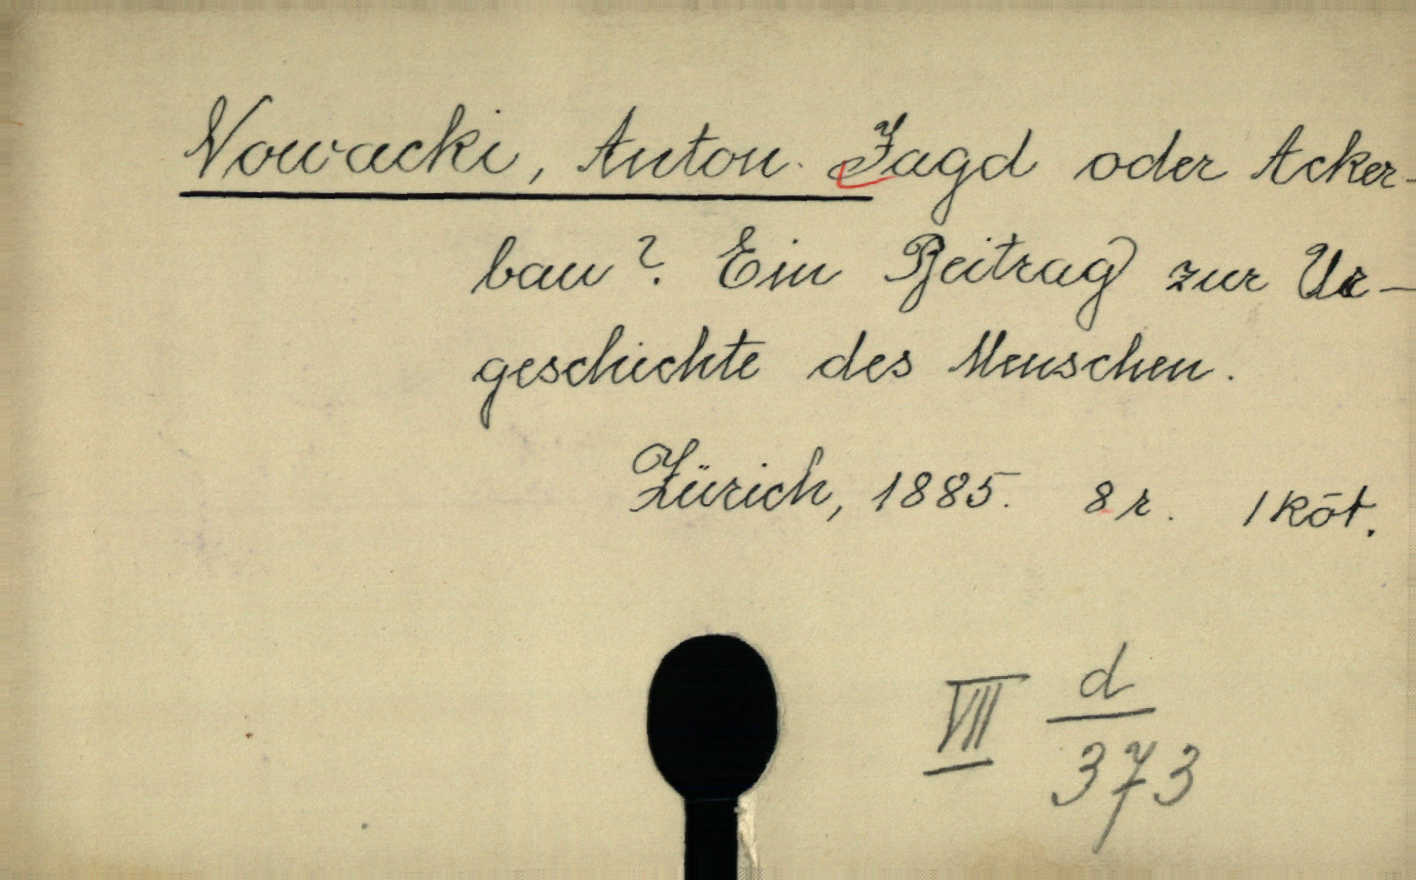 Nowacki, Anton. Jagd oder Acker-
bau? Ein Beitrag zur Ur-
geschichte des Menschen.
Zürich, 1885. 8 r. 1 köt.
VII d
373